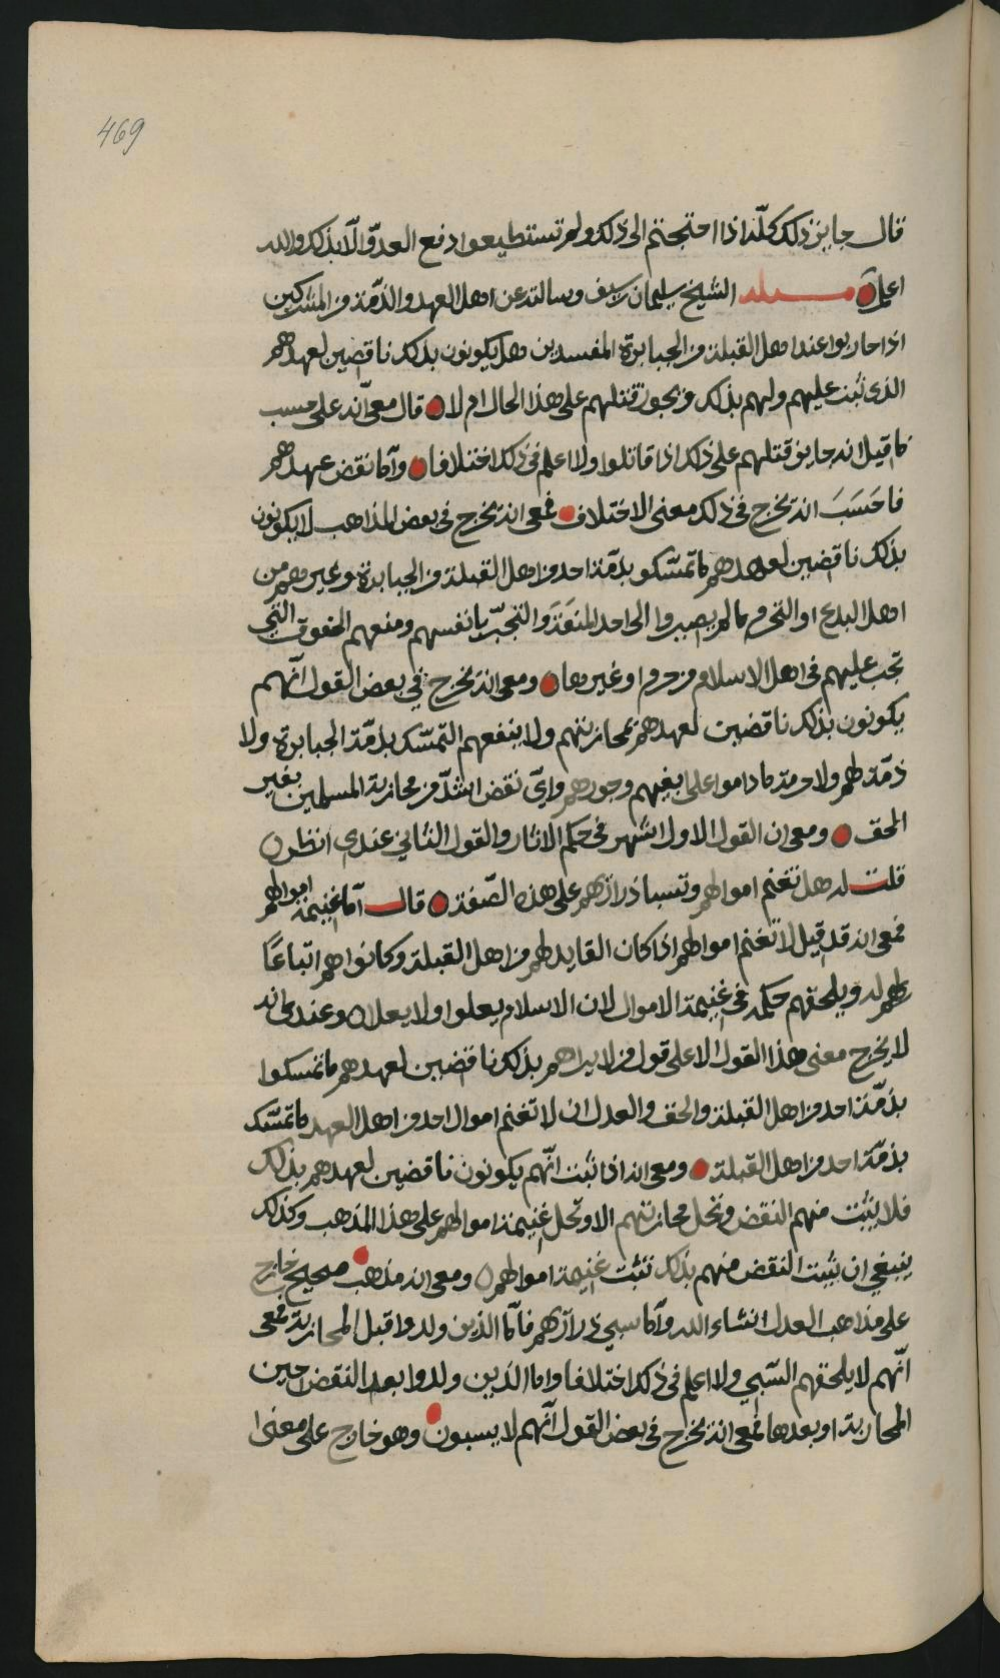 469
قال جايز ذلك كلّه اذا احتجتم الى ذلك ولم تستطيعوا دفع العدوّ الّا بذلك والله
اعلم مسئله الشيخ سليمان بن سيف وسالته عن اهل العهد والذّمة من المشركين
اذا حاربوا عند اهل القبلة من الجبابرة المفسدين هل يكونون بذلك ناقضين لعهدهم
الذي ثبت عليهم ولهم بذلك ويجوز قتلهم على هذا الحال ام لا قال معي انّه على حسب
ما قيل انه جايز قتلهم على ذلك اذا قاتلوا ولا اعلم في ذلك اختلافا وأما نقض عهدهم
فاحَسَبَ انه يخرج في ذلك معنى الاختلاف فمعي انه يخرج في بعض المذاهب لا يكونون
بذلك ناقضين لعهدهم ما تمسّكو بذمّة احد من اهل القبلة من الجبابرة وغيرهم من
اهل البدع او التحرم ما لم يصيروا الى احد المنعَة والتجبّر بانفسهم ومنعهم الحقوق التّي
تجب عليهم في اهل الاسلام من حرم او غيرها ومعي انه يخرج في بعض القول انّهم
يكونون بذلك ناقضين لعهدهم بمحاربتهم ولا ينفعهم التمسّك بذمّة الجبابرة ولا
ذمّة لهم ولا حرمة ما داموا على بغيهم وجورهم وايّ نقض اشدّ من محاربة المسلمين بغير
الحق ومعي ان القول الاول اشهر في حكم الاثار والقول الثاني عندي انظر
قلت له هل تغنم اموالهم وتسبا ذراريهم على هذه الصّفة قال أما غنيمة اموالهم
فمعي انه قد قيل لا تغنم اموالهم اذا كان القايد لهم من اهل القبلة وكانوا هم اتباعًا
لهم له ويلحقهم حكمه في غنيمة الاموال لان الاسلام يعلوا ولا يعلا وعندي انه
لا يخرج معنى هذا القول الا على قول من لا يراهم بذلك ناقضين لعهدهم ما تمسكوا
بذمّة احد من اهل القبلة والحق والعدل ان لا تغنم اموال احد من اهل العهد ما تمسّك
بذمّة احد من اهل القبلة ومعي انه اذا ثبت انّهم يكونون ناقضين لعهدهم بذلك
فلا يثبت منهم النقض وتحل محاربتهم الا وتحل غنيمة اموالهم على هذا المذهب وكذلك
ينبغي ان ثبت النقض منهم بذلك تثبت غنيمة اموالهم ومعي انه مذهب صحيح خارج
على مذاهب العدل انشاء الله وأما سبي ذراريهم فأما الذين ولدوا قبل المحاربة فمعي
انّهم لا يلحقهم السّبي ولا اعلم في ذلك اختلافا واما الذين ولدوا بعد النقض حين
المحاربة او بعدها فمعي انه يخرج في بعض القول انّهم لا يسبون وهو خارج على معنى